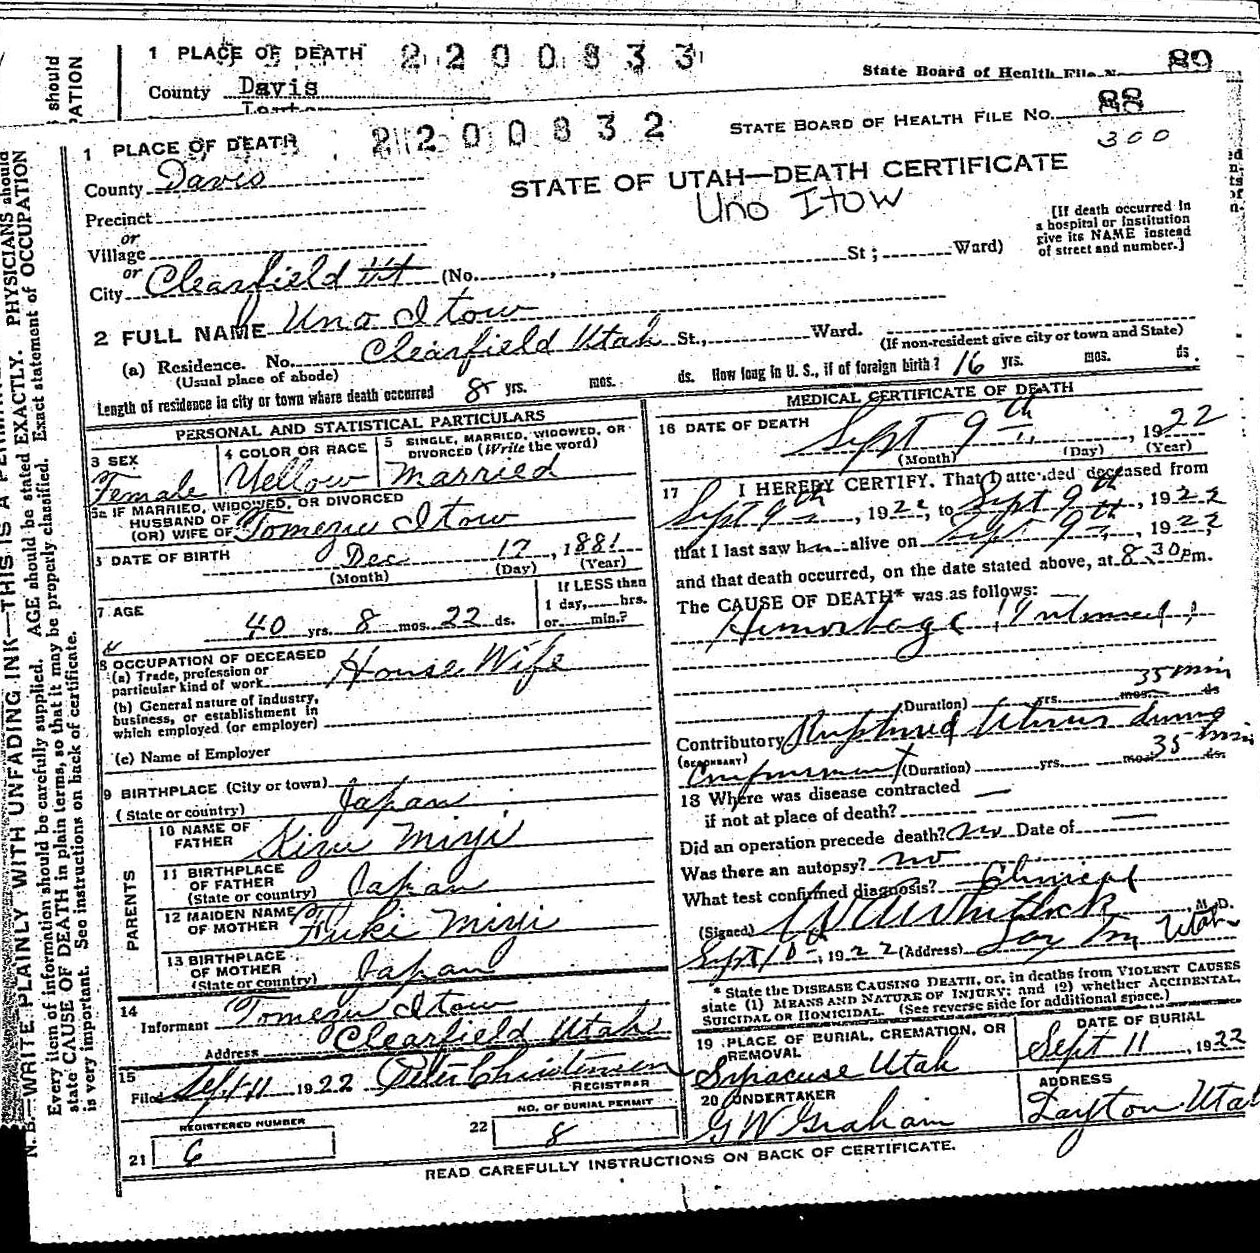 1 PLACE OF DEATH 2200833
State Board of Health File N
89
County Davis
should
PATION
1 PLACE OF DEATH 2200832
STATE BOARD OF HEALTH FILE NO. 88
300
County Davis
STATE OF UTAH—DEATH CERTIFICATE
Uno Itow
Precinct
or
Village
or
City Clearfield Ut (No. , St ; Ward)
[If death occurred in
a hospital or institution
give its NAME instead
of street and number.]
2 FULL NAME Uno Itow
(a) Residence. No. Clearfield Utah St., Ward.
(Usual place of abode)
(If non-resident give city or town and State)
Length of residence in city or town where death occurred 8 yrs. mos. ds. How long in U. S., if of foreign birth? 16 yrs. mos. ds.
PERSONAL AND STATISTICAL PARTICULARS
3 SEX
Female
4 COLOR OR RACE
Yellow
5 SINGLE, MARRIED, WIDOWED, OR
DIVORCED (Write the word)
Married
5a IF MARRIED, WIDOWED, OR DIVORCED
HUSBAND OF
(OR) WIFE OF Tomezu Itow
DATE OF BIRTH Dec 17, 1881
(Month) (Day) (Year)
7 AGE
40 yrs. 8 mos. 22 ds.
If LESS than
1 day, hrs.
or min.?
8 OCCUPATION OF DECEASED
(a) Trade, profession or
particular kind of work House Wife
(b) General nature of industry,
business, or establishment in
which employed (or employer)
(c) Name of Employer
9 BIRTHPLACE (City or town)
(State or country) Japan
PARENTS
10 NAME OF
FATHER Kizu Miyi
11 BIRTHPLACE
OF FATHER
(State or country) Japan
12 MAIDEN NAME
OF MOTHER Fuki Miyi
13 BIRTHPLACE
OF MOTHER
(State or country) Japan
14
Informant Tomezu Itow
Address Clearfield Utah
15
Filed Sept 11 1922 Peter Christensen
REGISTRAR
REGISTERED NUMBER
21 6
NO. OF BURIAL PERMIT
22 8
MEDICAL CERTIFICATE OF DEATH
16 DATE OF DEATH Sept 9th, 1922
(Month) (Day) (Year)
17 I HEREBY CERTIFY. That I attended deceased from
Sept 9th, 1922, to Sept 9th, 1922
that I last saw her alive on Sept 9th, 1922,
and that death occurred, on the date stated above, at 8 30 pm.
The CAUSE OF DEATH* was as follows:
Hemorhage (Internal)
35 min
(Duration) yrs. mos. ds
Contributory Ruptured Uterus during
(SECONDARY) Confinement (Duration) yrs. mos. 35 min ds.
18 Where was disease contracted —
if not at place of death?
Did an operation precede death? no Date of —
Was there an autopsy? no
What test confirmed diagnosis? Clinical
(Signed) W A Whitlock, M. D.
Sept 10th, 1922 (Address) Layton Utah
* State the DISEASE CAUSING DEATH, or, in deaths from VIOLENT CAUSES
state (1) MEANS AND NATURE OF INJURY; and (2) whether ACCIDENTAL,
SUICIDAL OR HOMICIDAL. (See reverse side for additional space.)
19 PLACE OF BURIAL, CREMATION, OR
REMOVAL
Syracuse Utah
DATE OF BURIAL
Sept 11, 1922
20 UNDERTAKER
G W Graham
ADDRESS
Layton Utah
READ CAREFULLY INSTRUCTIONS ON BACK OF CERTIFICATE.
N. B.—WRITE PLAINLY WITH UNFADING INK—THIS IS A
Every item of information should be carefully supplied. AGE should be stated EXACTLY. PHYSICIANS should
state CAUSE OF DEATH in plain terms, so that it may be properly classified. Exact statement of OCCUPATION
is very important. See instructions on back of certificate.